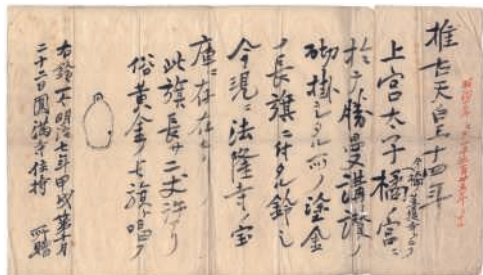 推古天皇十四年
上宮太子橘ノ宮ニ
於テ勝曼講讃ノ
砌掛ラレタル所ノ塗金
ノ長旗ニ付タル鈴ニ
今現ニ法隆寺ノ宝
庫ニ存在セリ
此旗長サ二丈許リ
俗黄金ノ七旗ト唱フ
右鈴一ケ明治七年甲戌第十月
二十二日圓満寺住持 所贈